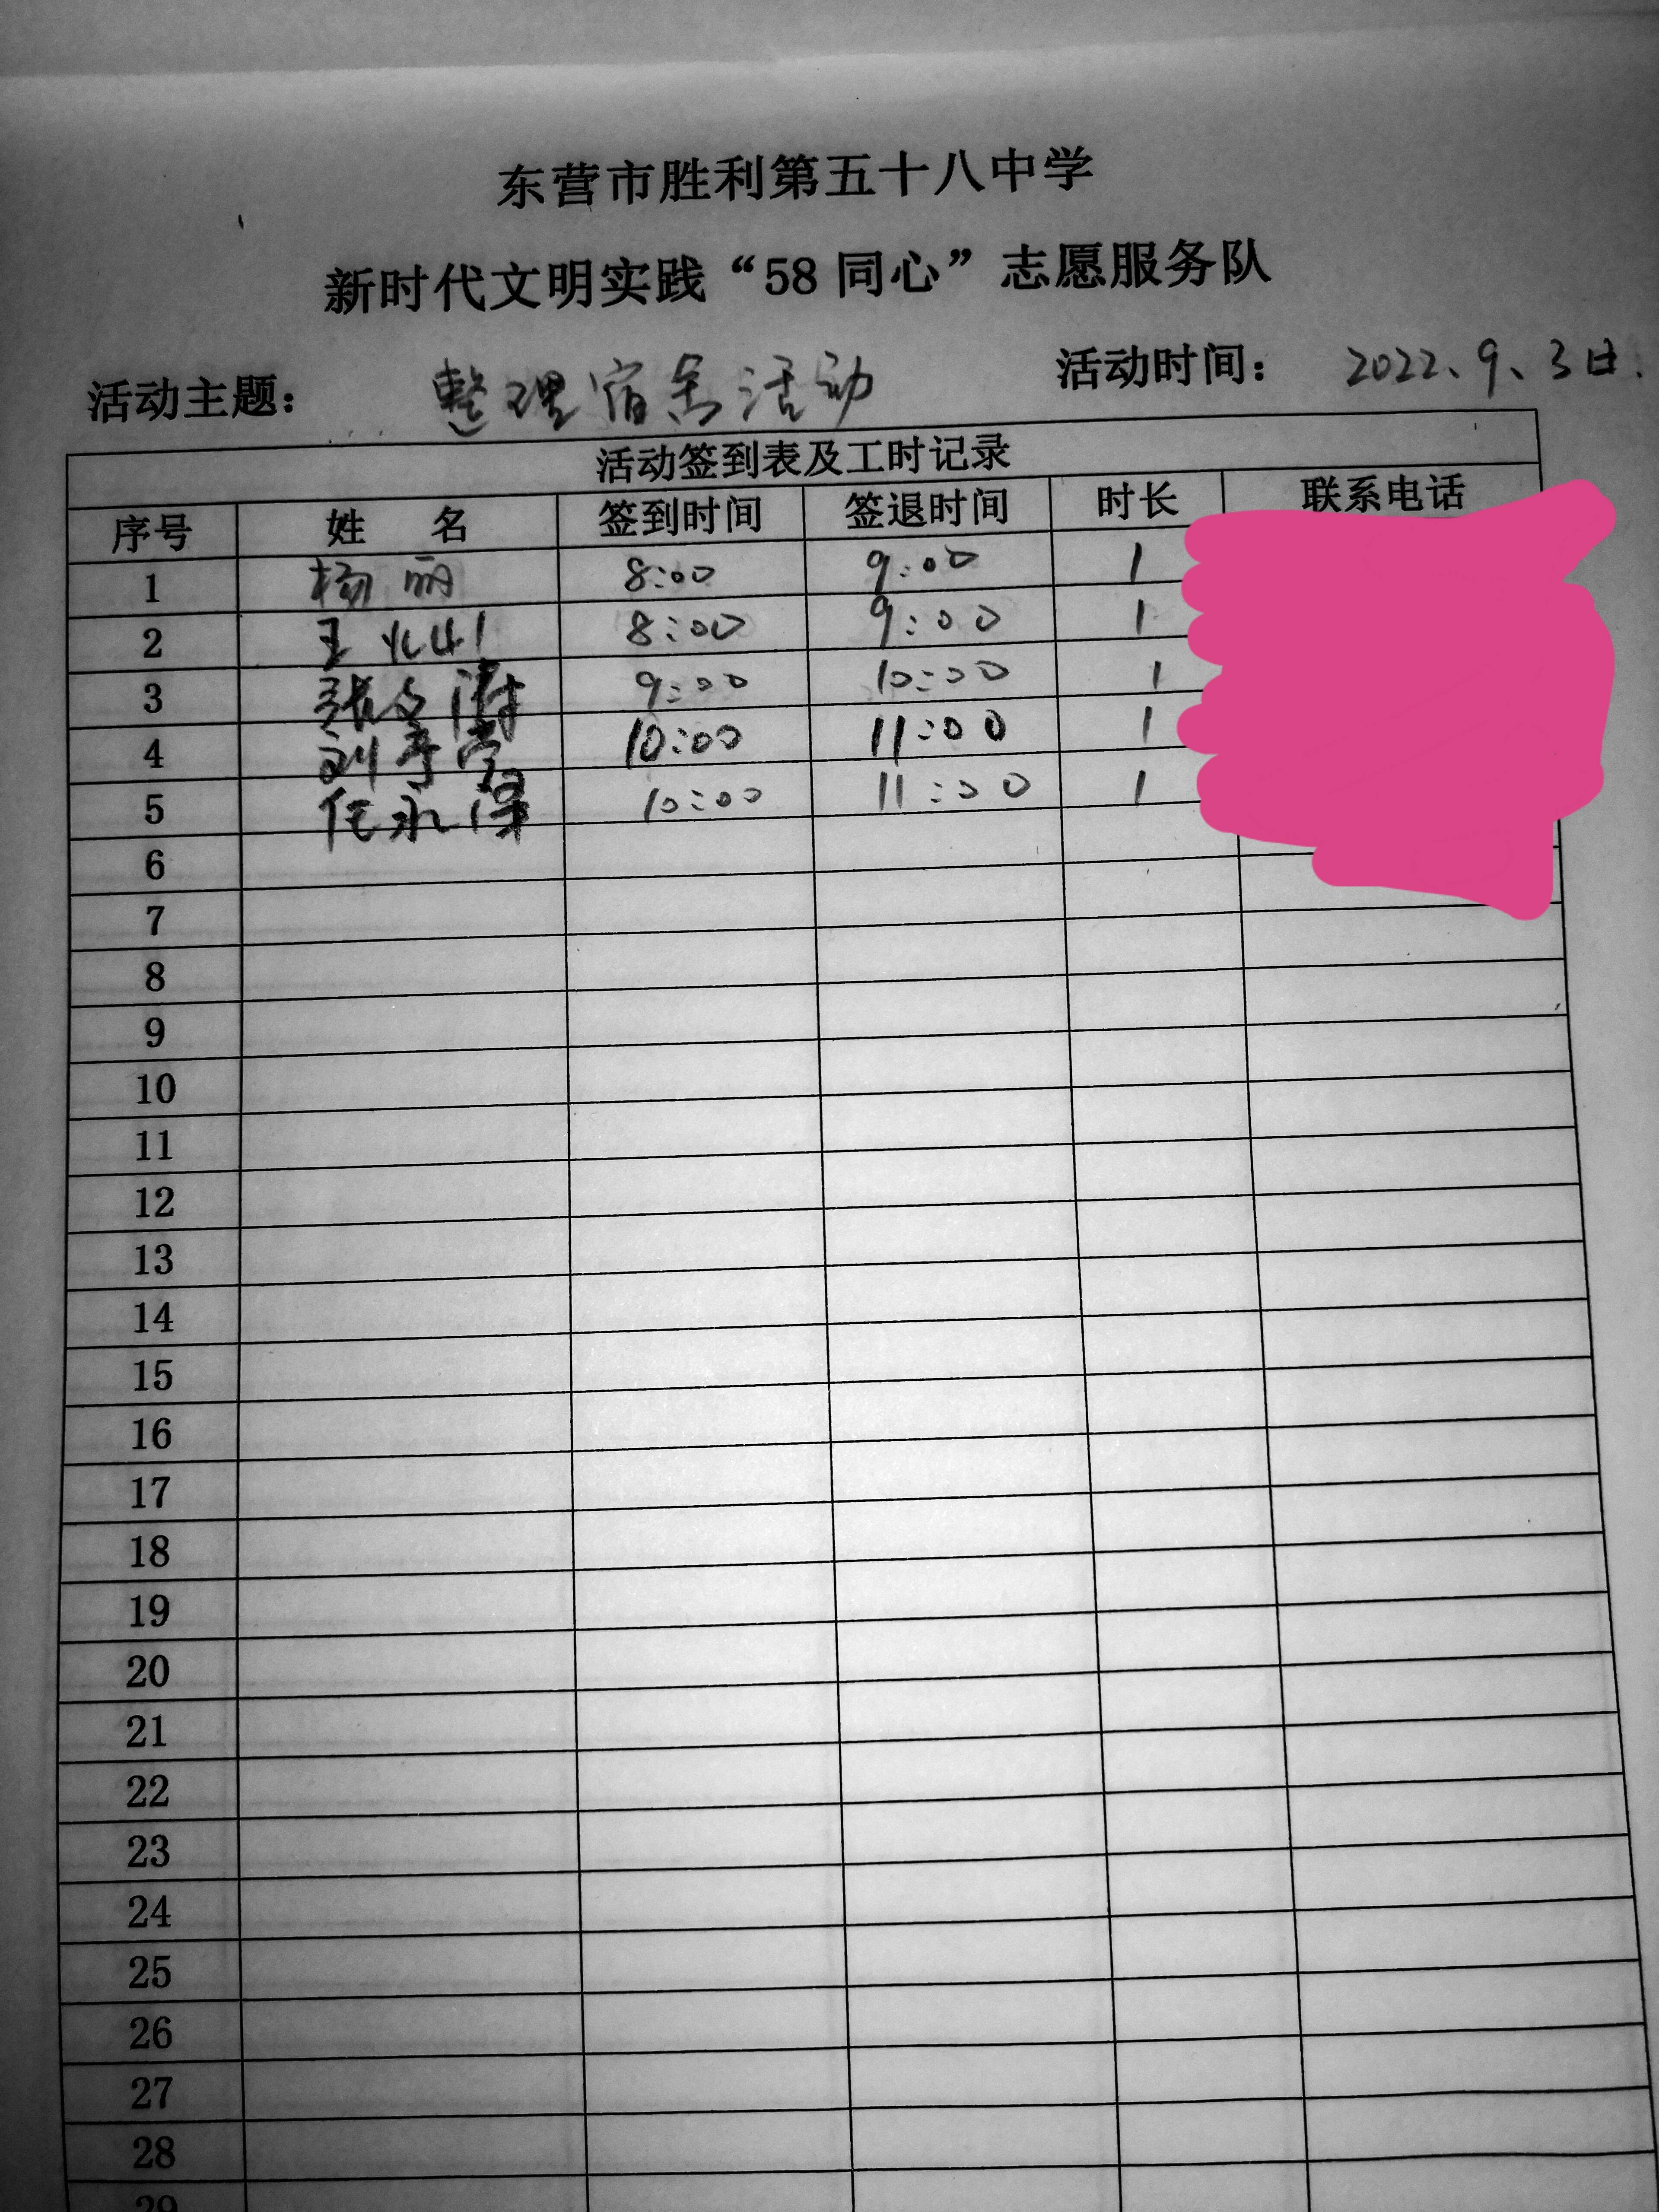 东营市胜利第五十八中学
新时代文明实践“58 同心”志愿服务队
活动主题： 整理宿舍活动 活动时间： 2022、9、3日.
活动签到表及工时记录
序号 姓 名 签到时间 签退时间 时长 联系电话
1 杨丽 8:00 9:00 1
2 王 8:00 9:00 1
3 张文 9:00 10:00 1
4 刘 10:00 11:00 1
5 任永 10:00 11:00 1
6
7
8
9
10
11
12
13
14
15
16
17
18
19
20
21
22
23
24
25
26
27
28
29